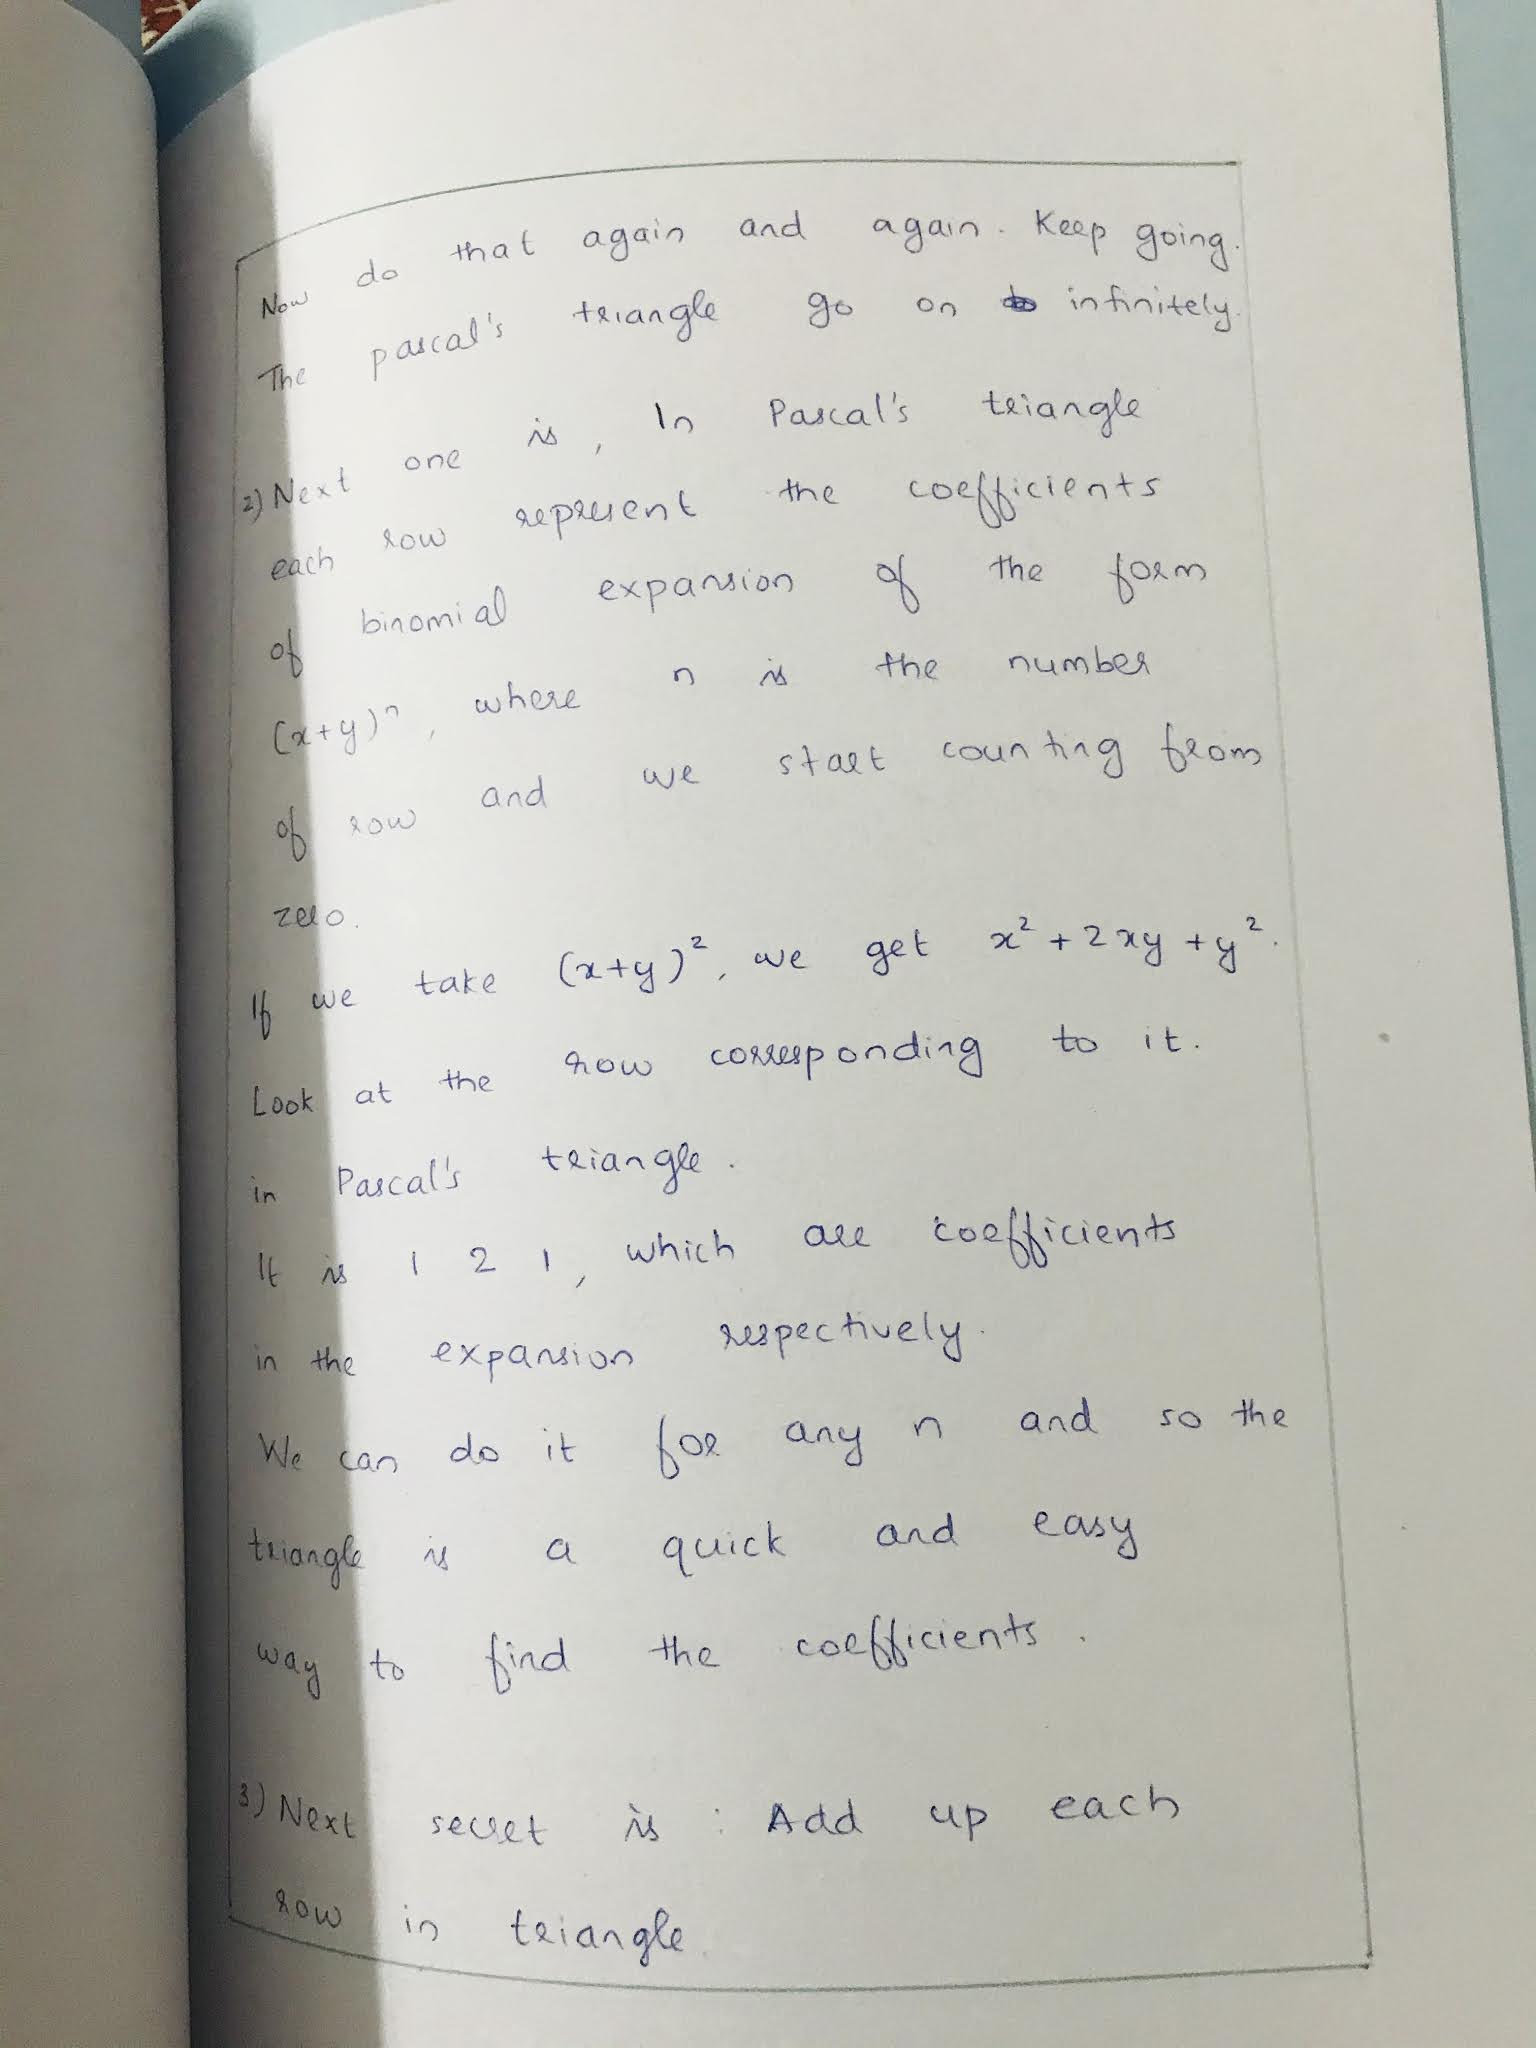 Now do that again and again. Keep going.
The pascal's triangle go on infinitely.
2) Next one is, In Pascal's triangle
each row represent the coefficients
of binomial expansion of the form
(x+y)ⁿ, where n is the number
of row and we start counting from
zero.
If we take (x+y)², we get x² + 2xy + y².
Look at the row corresponding to it.
in Pascal's triangle.
It is 1 2 1, which are coefficients
in the expansion respectively.
We can do it for any n and so the
triangle is a quick and easy
way to find the coefficients.
3) Next secret is : Add up each
row in triangle.